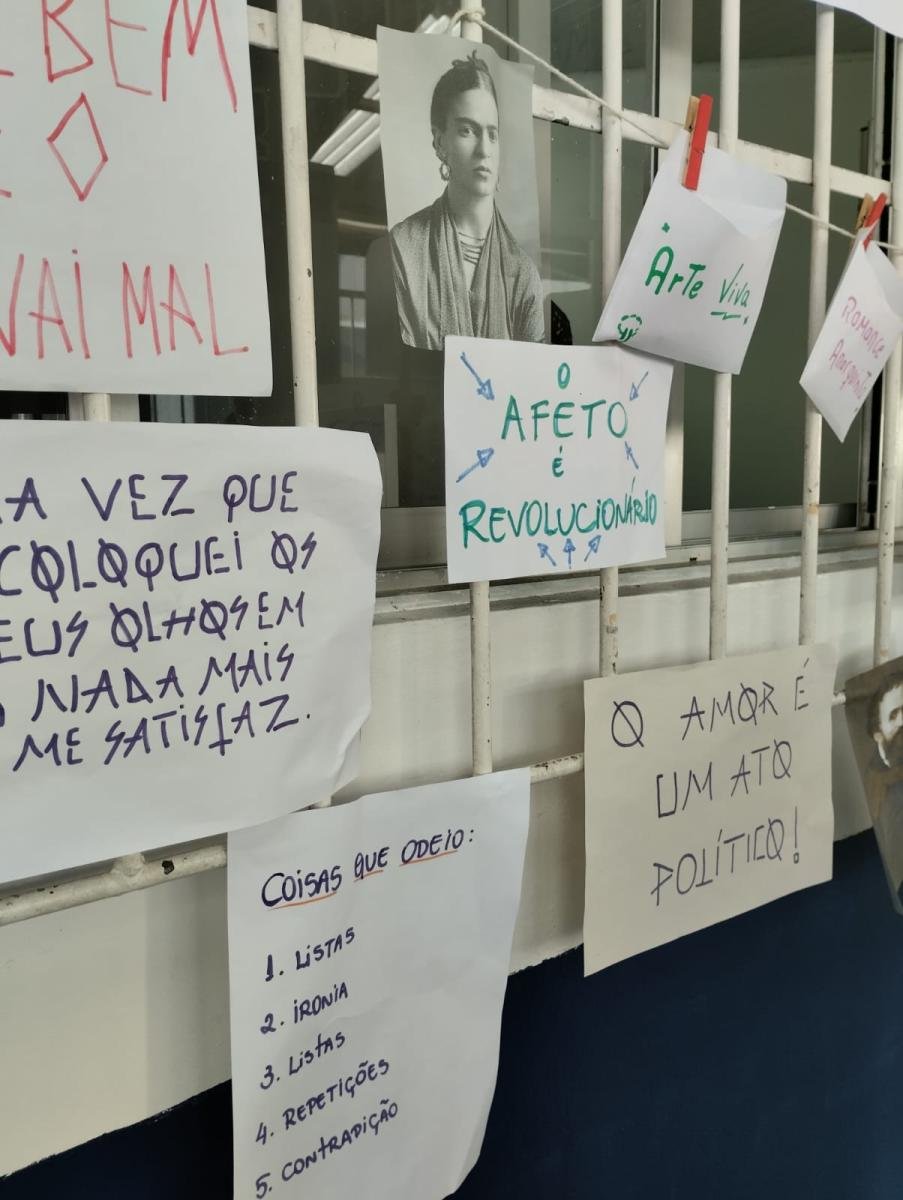 EBEM
O
VAI MAL
A VEZ QUE
COLOQUEI OS
EUS OLHOS EM
NADA MAIS
ME SATISFAZ.
O
AFETO
É
REVOLUCIONÁRIO
Arte Viva
ROMANCE
O AMOR É
UM ATO
POLÍTICO!
COISAS QUE ODEIO:
1. LISTAS
2. IRONIA
3. LIStAS
4. REPETIÇÕES
5. CONtRADIÇÃO